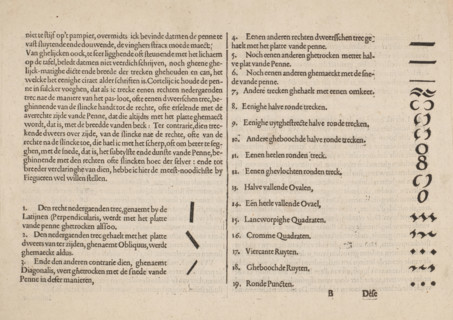 niet te stijf op't pampier, overmidts ick bevinde datmen de penne te
vast sluytende ende douwende, de vinghers strack moede maeckt;
Van ghelijcken oock, te seer ligghende oft steunende met het lichaem
op de tafel, beledt datmen niet veerdich schrijven, noch gheene ghe-
lijck-matighe dicte ende breede der trecken ghehouden en can, het
welcke het eenighe cieraet alder schriften is. Cortelijc ic houde de pen-
ne in sulcker voeghen, dat als ic trecke eenen rechten nedergaenden
trec nae de maniere van het pas-loot, oft eenen dweerschen trec, be-
ghinnende van de slincke handt tot de rechte, oft
averecht zijde vande Penne, dat die altijdts met het platte ghemaect
wordt, dat is, met de breedde vanden beck: Ter contrarie, dien tree-
kende dweers over zijde, van de slincke nae de rechte, oft van de
rechte na de slincke toe, die hael ic met het scherp, oft om beter te seg-
ghen, met de snede, dat is, het subtylste ende dunste vande Penne, be-
ghinnende met den rechten oft slincken hoec der selver: ende tot
breeder verclaringhe van dien, hebbe ic hier de meest-noodichste by
Figueren wel willen stellen.
1. Den recht nedergaenden trec, genaemt by de
Latijnen (Perpendicularis, werdt met het platte
vande penne ghetrocken alsoo.
2. Den nedergaenden trec gehaelt met het platte
dweers van ter zijden, ghenaemt Obliquus, werdt
ghemaeckt aldus.
3. Ende den anderen contrarie dien, ghenaemt
Diagonalis, wert ghetrocken met de snede vande
Penne in deser manieren,
4. Eenen anderen rechten dweersschen trec ge-
haelt met het platte vande penne.
5. Noch eenen anderen ghetrocken met het hal-
ve plat vande Penne.
6. Noch eenen anderen ghemaeckt met de sne-
de vande penne.
7. Andere trecken ghehaelt met eenen omkeer.
8. Eenighe halve ronde trecken.
9. Eenighe uytghestreckte halve ronde trecken.
10. Andere gheboochde halve ronde trecken.
11. Eenen heelen ronden treck.
12. Eenen ghevlochten ronden treck.
13. Halve vallende Ovalen,
14. Een heele vallende Ovael,
15. Lancworpighe Quadraten.
16. Cromme Quadraten.
17. Viercante Ruyten.
18. Gheboochde Ruyten.
19. Ronde Puncten.
B Dese